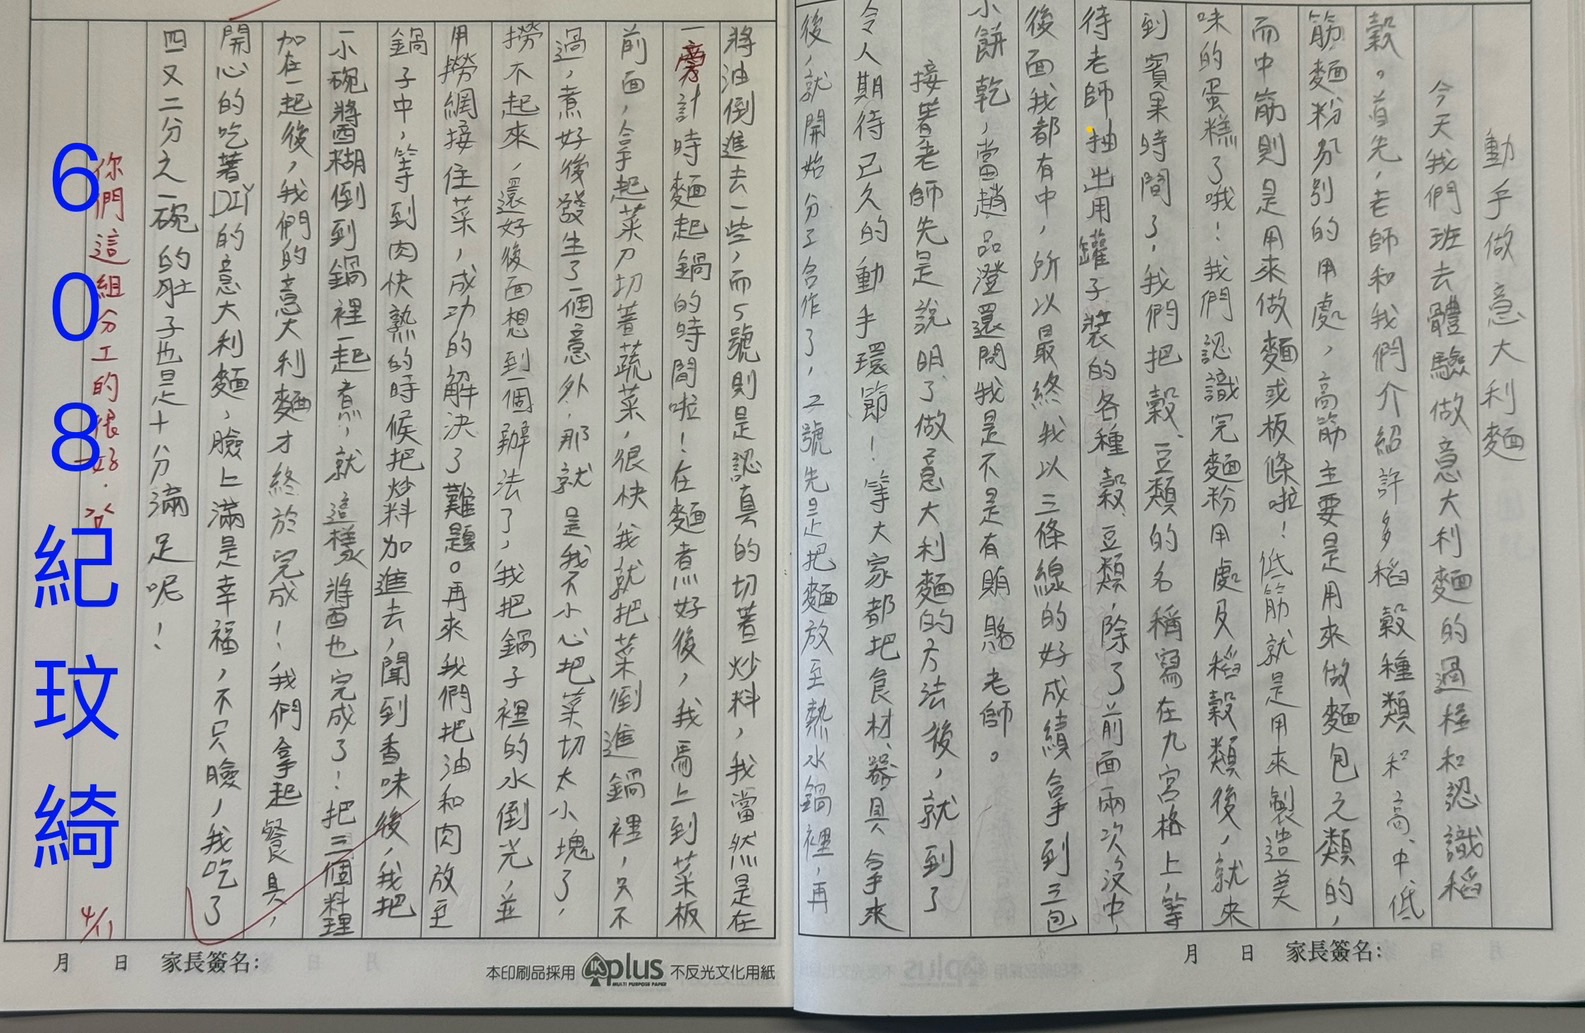 動手做意大利麵
今天我們班去體驗做意大利麵的過程和認識稻
穀。首先，老師和我們介紹許多稻穀種類和高、中、低
筋麵粉分別的用處，高筋主要是用來做麵包之類的，
而中筋則是用來做麵或板條啦！低筋就是用來製造美
味的蛋糕了哦！我們認識完麵粉用處及稻穀類後，就來
到賓果時間了，我們把穀、豆類的名稱寫在九宮格上，等
待老師抽出用罐子裝的各種穀、豆類，除了前面兩次沒中，
後面我都有中，所以最終我以三條線的好成績拿到三包
小餅乾，當趙品澄還問我是不是有賄賂老師。
接著老師先是說明了做意大利麵的方法後，就到了
令人期待已久的動手環節！等大家都把食材、器具拿來
後，就開始分工合作了，2號先是把麵放至熱水鍋裡，再
將油倒進去一些，而5號則是認真的切著炒料，我當然是在
一旁計時麵起鍋的時間啦！在麵煮好後，我馬上到菜板
前面，拿起菜刀切著蔬菜，很快我就把菜倒進鍋裡，只不
過，煮好後發生了一個意外，那就是我不小心把菜切太小塊了，
撈不起來，還好後面想到一個辦法了，我把鍋子裡的水倒光，並
用撈網接住菜，成功的解決了難題。再來我們把油和肉放至
鍋子中，等到肉快熟的時候把炒料加進去，聞到香味後，我把
一小碗將醬糊倒到鍋裡一起煮，就這樣將西也完成了！把三個料理
加在一起後，我們的意大利麵才終於完成！我們拿起餐具，
開心的吃著DIY的意大利麵，臉上滿是幸福，不只臉，我吃了
四又二分之一碗的肚子也是十分滿足呢！
你們這組分工的很好.
4/11
608紀玟綺
月 日 家長簽名：
本印刷品採用 plus 不反光文化用紙
MULTI PURPOSE PAPER
月 日 家長簽名：